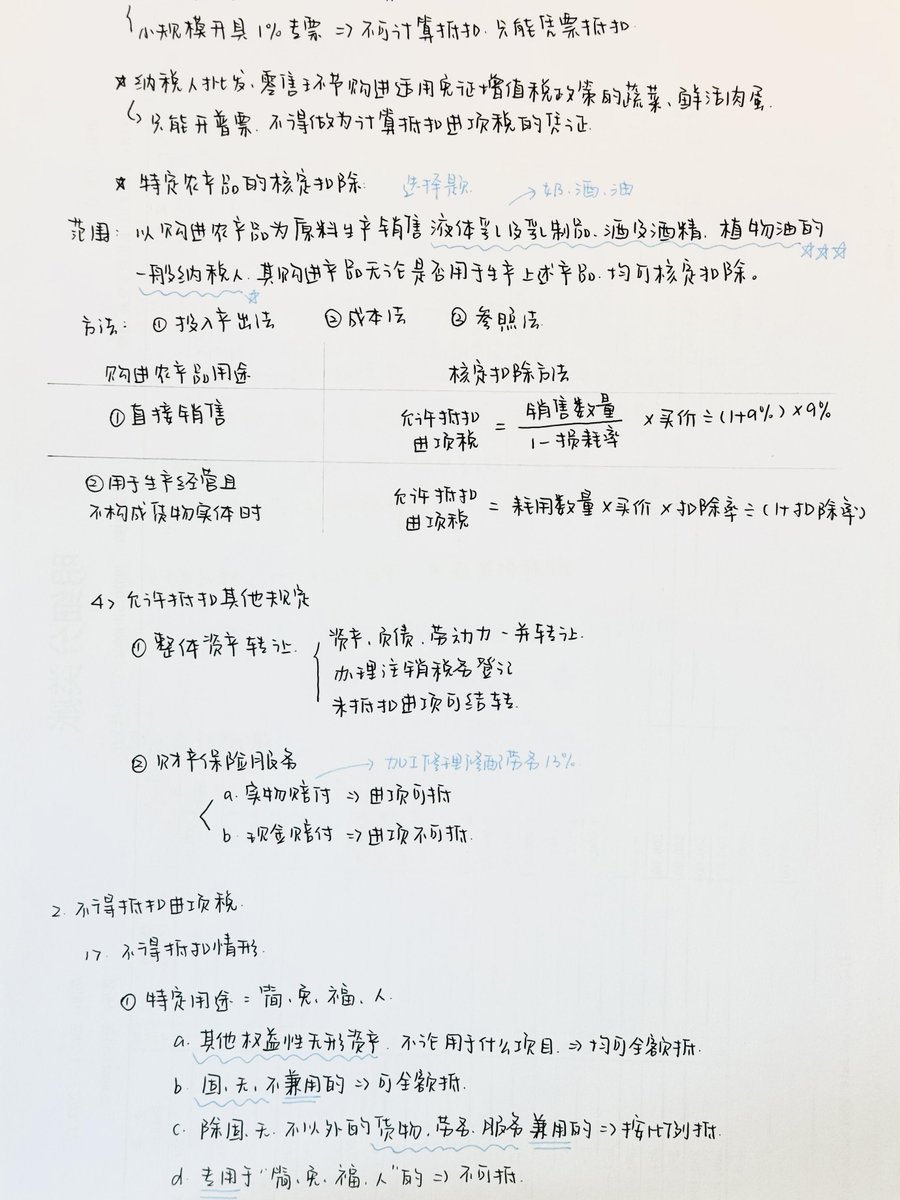 小规模开具1%专票 => 不可计算抵扣.只能凭票抵扣.
☆纳税人批发、零售环节购进适用免征增值税政策的蔬菜、鲜活肉蛋.
只能开普票.不得做为计算抵扣进项税的凭证.
☆ 特定农产品的核定扣除: 选择题. →奶、酒、油
范围: 以购进农产品为原料生产销售液体乳及乳制品、酒及酒精、植物油的
一般纳税人.其购进产品无论是否用于生产上述产品.均可核定扣除。
方法: ①投入产出法 ②成本法 ③参照法.
购进农产品用途 核定扣除方法
①直接销售 允许抵扣进项税 = 销售数量/(1-损耗率) ×买价÷(1+9%)×9%
②用于生产经营且
不构成货物实体时 允许抵扣进项税 = 耗用数量×买价×扣除率÷(1+扣除率)
4> 允许抵扣其他规定
①整体资产转让. 资产、负债、劳动力一并转让.
办理注销税务登记
未抵扣进项可结转.
②财产保险服务 →加工修理修配劳务13%
a.实物赔付 => 进项可抵
b.现金赔付 => 进项不可抵.
2.不得抵扣进项税.
1>.不得抵扣情形.
①特定用途=简、免、福、人.
a.其他权益性无形资产.不论用于什么项目.=>均可全额抵.
b.固、无、不兼用的=>可全额抵.
c.除固、无、不以外的货物、劳务、服务兼用的=>按比例抵.
d.专用于“简、免、福、人”的=>不可抵.